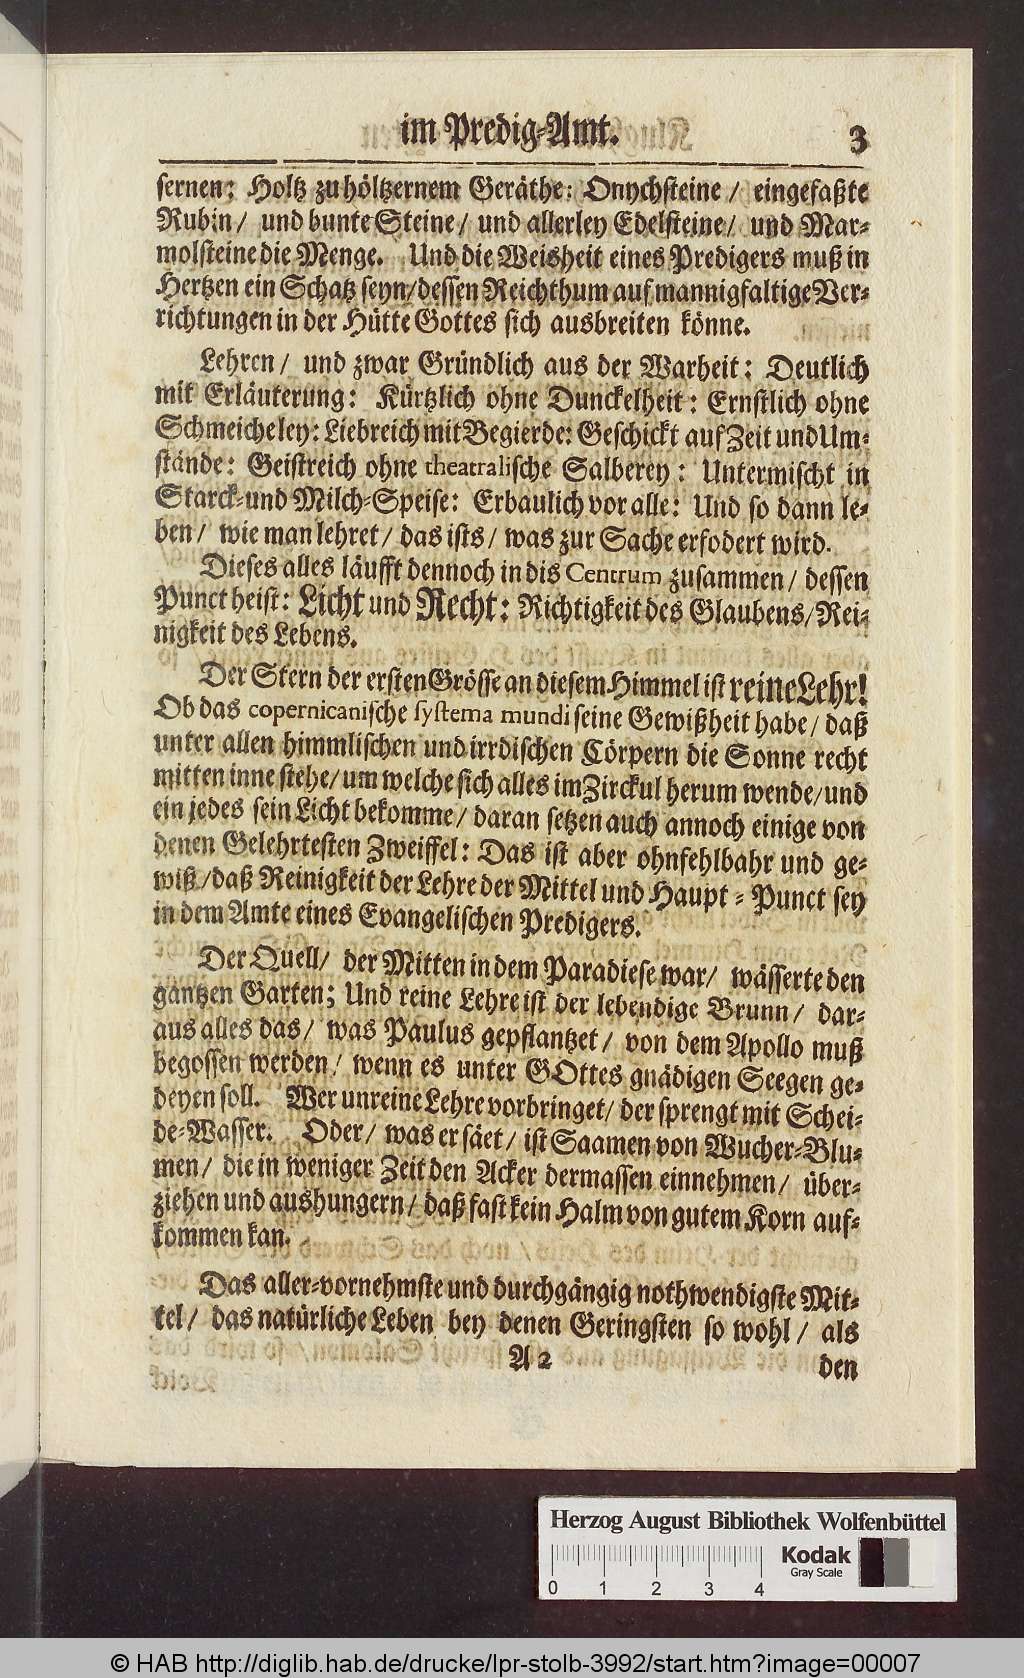 im Predig-Amt. 3
sernen: Holtz zu höltzernem Geräthe: Onychsteine / eingefaßte
Rubin / und bunte Steine / und allerley Edelsteine / und Mar-
molsteine die Menge. Und die Weisheit eines Predigers muß in
Hertzen ein Schatz seyn/dessen Reichthum auf mannigfaltige Ver-
richtungen in der Hütte Gottes sich ausbreiten könne.
Lehren / und zwar Gründlich aus der Warheit: Deutlich
mit Erläuterung: Kürtzlich ohne Dunckelheit: Ernstlich ohne
Schmeicheley: Liebreich mit Begierde: Geschickt auf Zeit und Um-
stände: Geistreich ohne theatralische Salberey: Untermischt in
Starck-und Milch-Speise: Erbaulich vor alle: Und so dann le-
ben / wie man lehret / das ists / was zur Sache erfodert wird.
Dieses alles läufft dennoch in dis Centrum zusammen / dessen
Punct heist: Licht und Recht: Richtigkeit des Glaubens/Rei-
nigkeit des Lebens.
Der Stern der ersten Grösse an diesem Himmel ist reine Lehr!
Ob das copernicanische systema mundi seine Gewißheit habe / daß
unter allen himmlischen und irrdischen Cörpern die Sonne recht
mitten inne stehe/um welche sich alles im Zirckul herum wende/und
ein jedes sein Licht bekomme / daran setzen auch annoch einige von
denen Gelehrtesten Zweiffel: Das ist aber ohnfehlbahr und ge-
wiß/daß Reinigkeit der Lehre der Mittel und Haupt-Punct sey
in dem Amte eines Evangelischen Predigers.
Der Quell / der Mitten in dem Paradiese war / wässerte den
gantzen Garten; Und reine Lehre ist der lebendige Brunn / dar-
aus alles das / was Paulus gepflantzet / von dem Apollo muß
begossen werden / wenn es unter GOttes gnädigen Seegen ge-
deyen soll. Wer unreine Lehre vorbringet/ der sprengt mit Schei-
de-Wasser. Oder / was er säet / ist Saamen von Wucher-Blu-
men / die in weniger Zeit den Acker dermassen einnehmen / über-
ziehen und aushungern / daß fast kein Halm von gutem Korn auf-
kommen kan.
Das aller-vornehmste und durchgängig nothwendigste Mit-
tel / das natürliche Leben bey denen Geringsten so wohl / als
A 2 den
Herzog August Bibliothek Wolfenbüttel
0 1 2 3 4
Kodak
Gray Scale
© HAB http://diglib.hab.de/drucke/lpr-stolb-3992/start.htm?image=00007